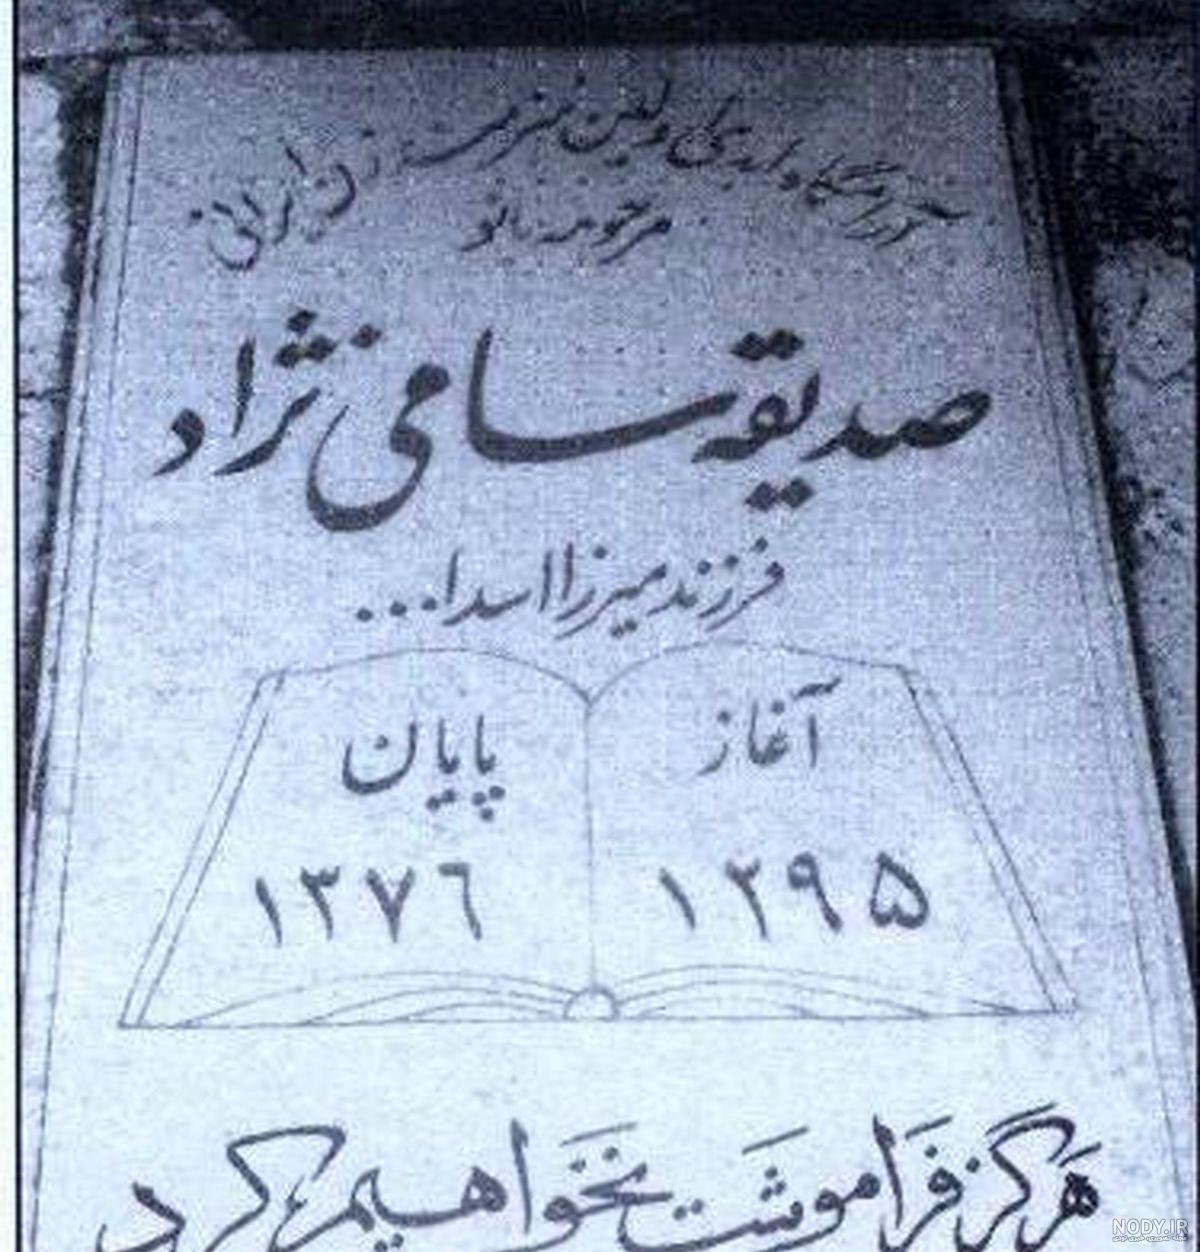 آرامگاه ابدی اولین هنرمند زن ایرانی
مرحومه بانو
صدیقه سامی نژاد
فرزند میرزا اسدا...
آغاز
پایان
۱۲۹۵
۱۳۷۶
هرگز فَراموشَت نَخَواهیم کرد
NODY.IR